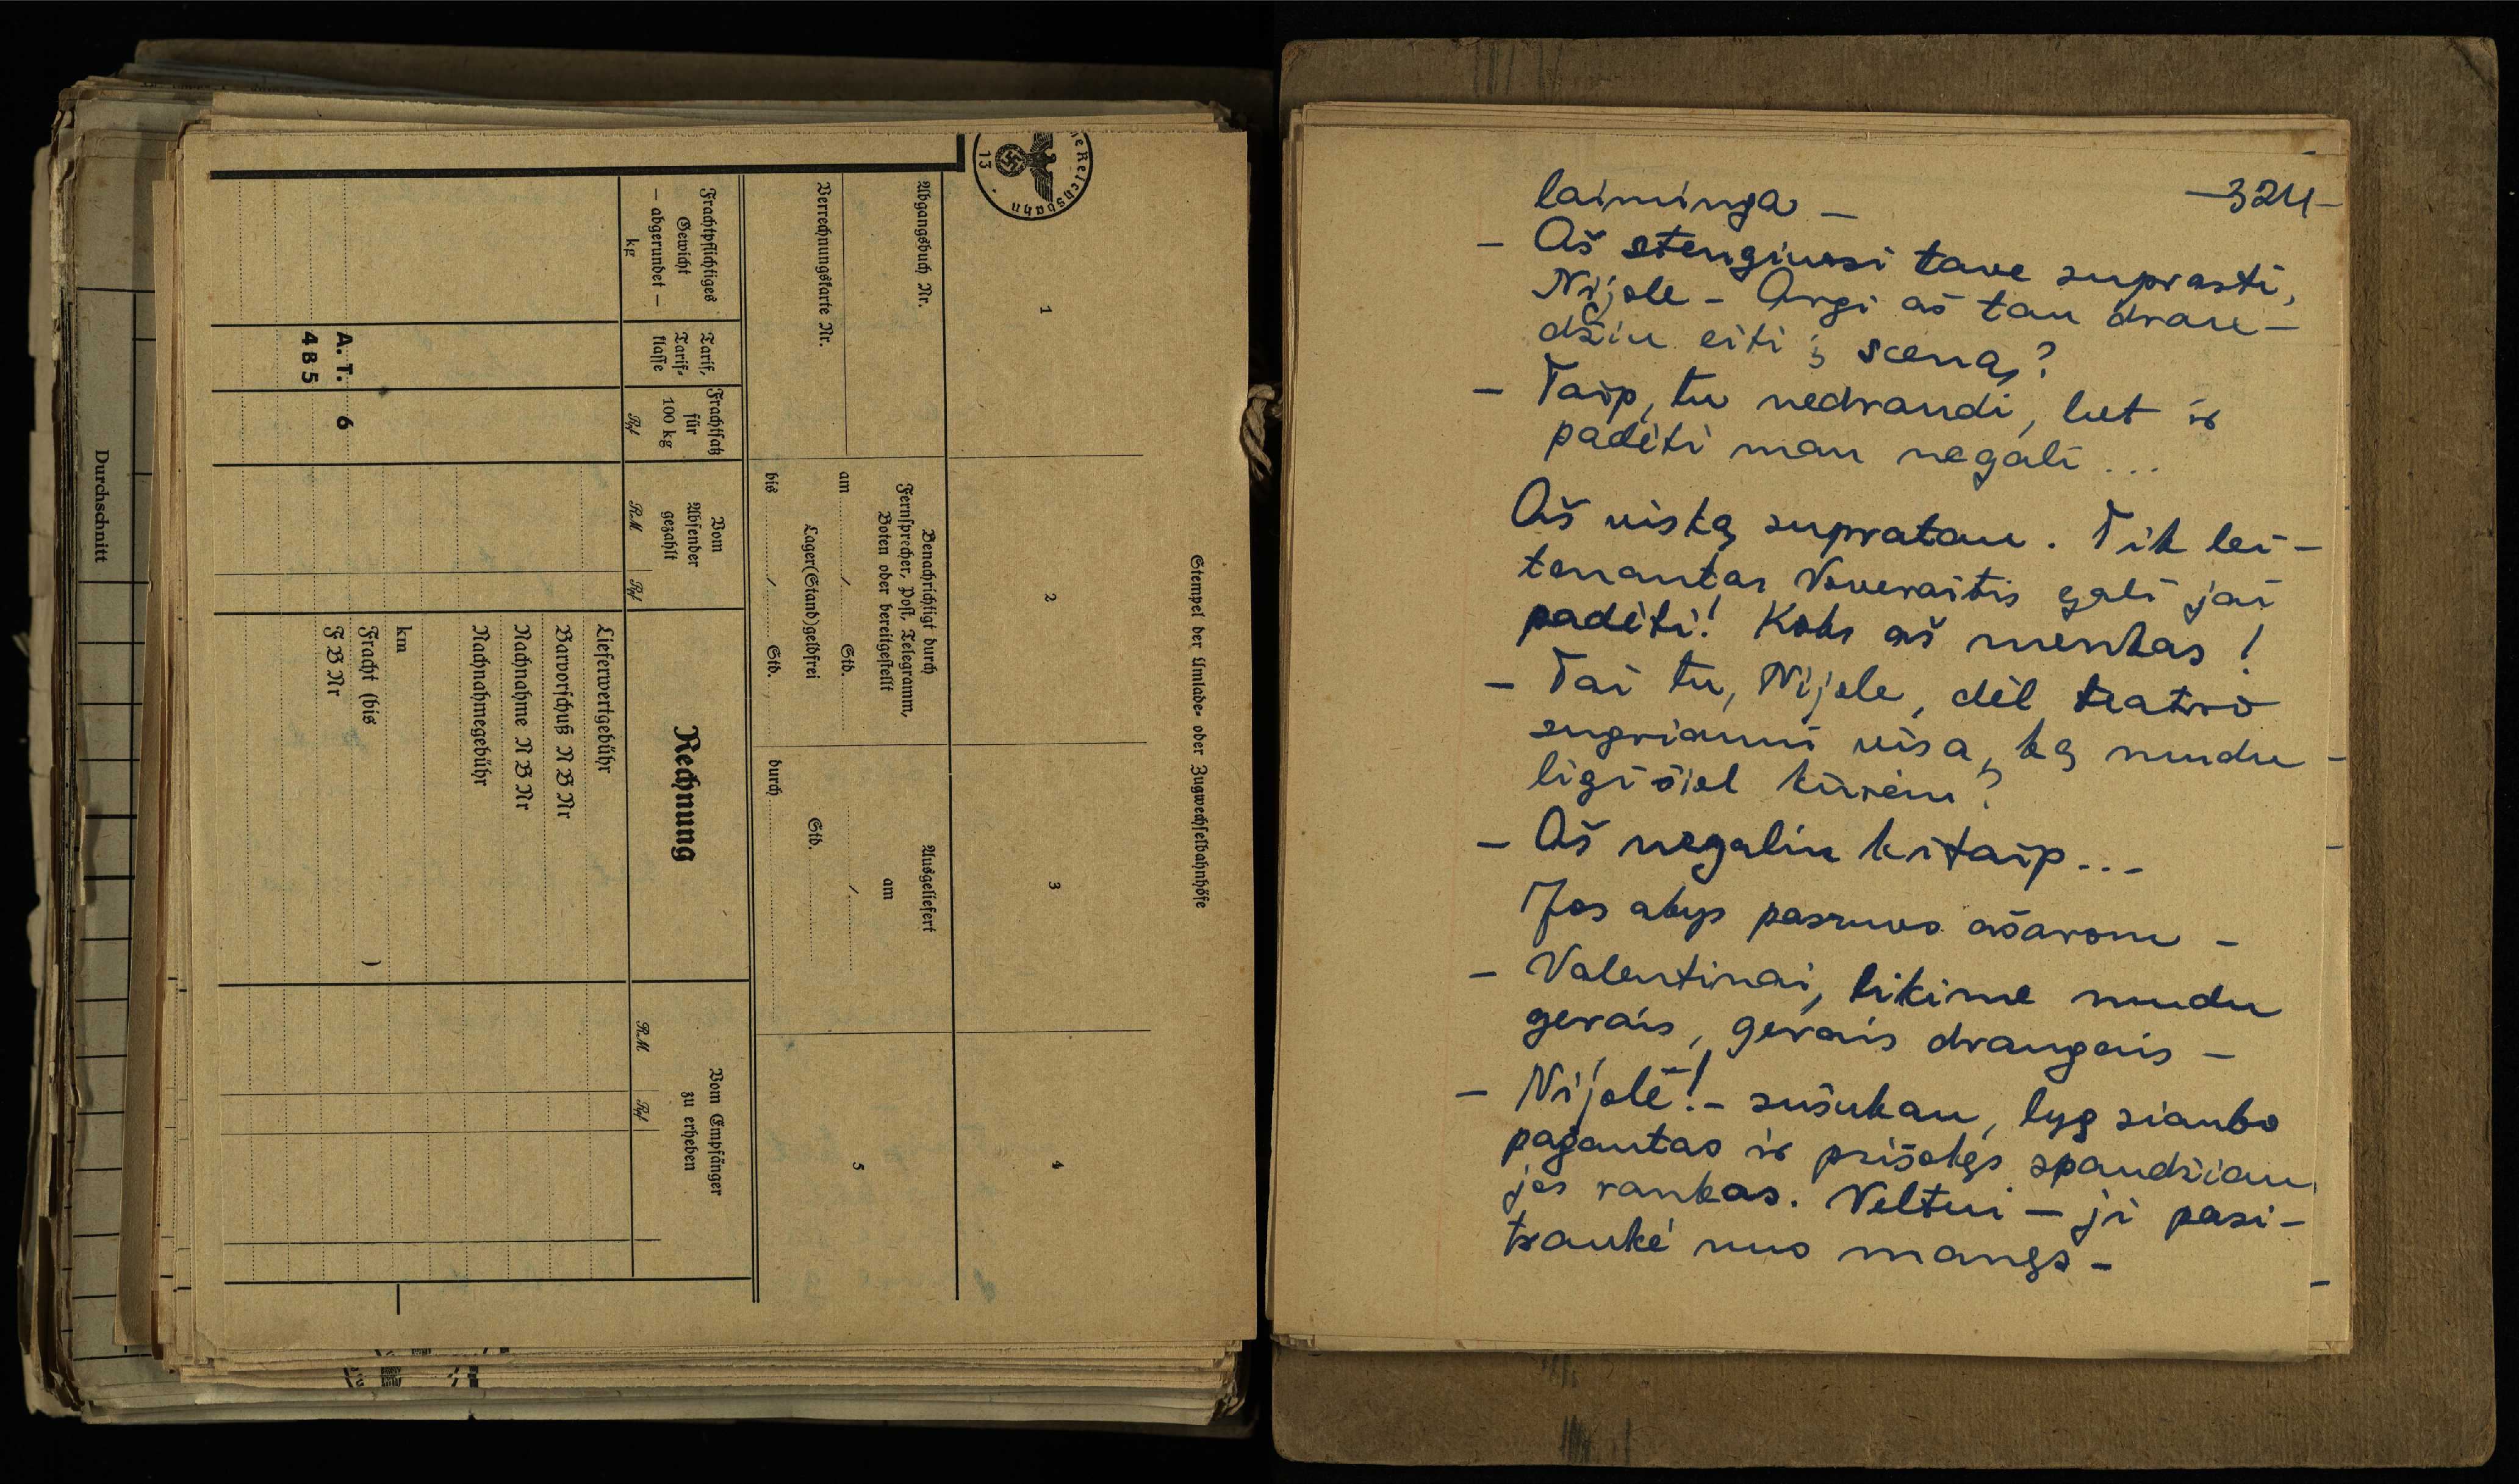 Durchschnitt
e Reichsbahn
13
Stempel der Umlade- oder Zugwechselbahnhöfe
1
2
3
4
Abgangsbuch Nr.
Verrechnungskarte Nr.
Benachrichtigt durch
Fernsprecher, Post, Telegramm,
Boten oder bereitgestellt
am / Std.
Lager(Stand)geldfrei
bis / Std.
Ausgeliefert
am
/
Std.
durch
5
Frachtpflichtiges
Gewicht
— abgerundet —
kg
Tarif,
Tarif-
klasse
Frachtsatz
für
100 kg
Rpf
Vom
Absender
gezahlt
RM
Rpf
Rechnung
Vom Empfänger
zu erheben
RM
Rpf
Lieferwertgebühr
Barvorschuß N B Nr
Nachnahme N B Nr
Nachnahmegebühr
km
Fracht (bis )
F B Nr
A. T. 6
4 8 5
-324-
laiminga -
- Aš stengiuosi tave suprasti,
Nijole - Argi aš tau drau-
džiu eiti į sceną?
- Taip, tu nedraudi, bet ir
padėti man negali...
Aš viską supratau. Tik lei-
tenantas Voveraitis gali jai
padėti! Koks aš menkas!
- Tai tu, Nijole, dėl teatro
sugriauni visa, ką mudu
ligi šiol kūrėm?
- Aš negaliu kitaip...
Jos akys pasruvo ašarom -
- Valentinai, likime mudu
gerais, gerais draugais -
- Nijole! - sušukau, lyg siaubo
pagautas ir prišokęs spaudžiau
jos rankas. Veltui - ji pasi-
traukė nuo manęs -